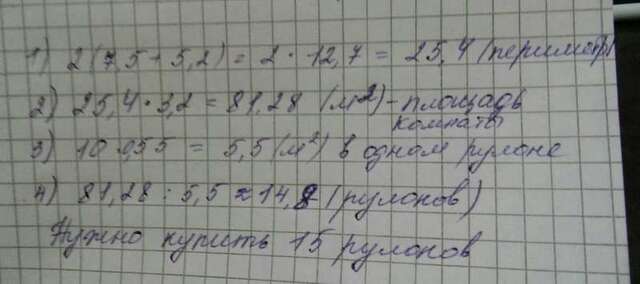 1) 2(7,5+5,2) = 2 · 12,7 = 25,4 (периметр)
2) 25,4 · 3,2 = 81,28 (м2) - площадь
комнаты
3) 10 · 0,55 = 5,5 (м2) в одном рулоне
4) 81,28 : 5,5 ≈ 14,8 (рулонов)
Нужно купить 15 рулонов